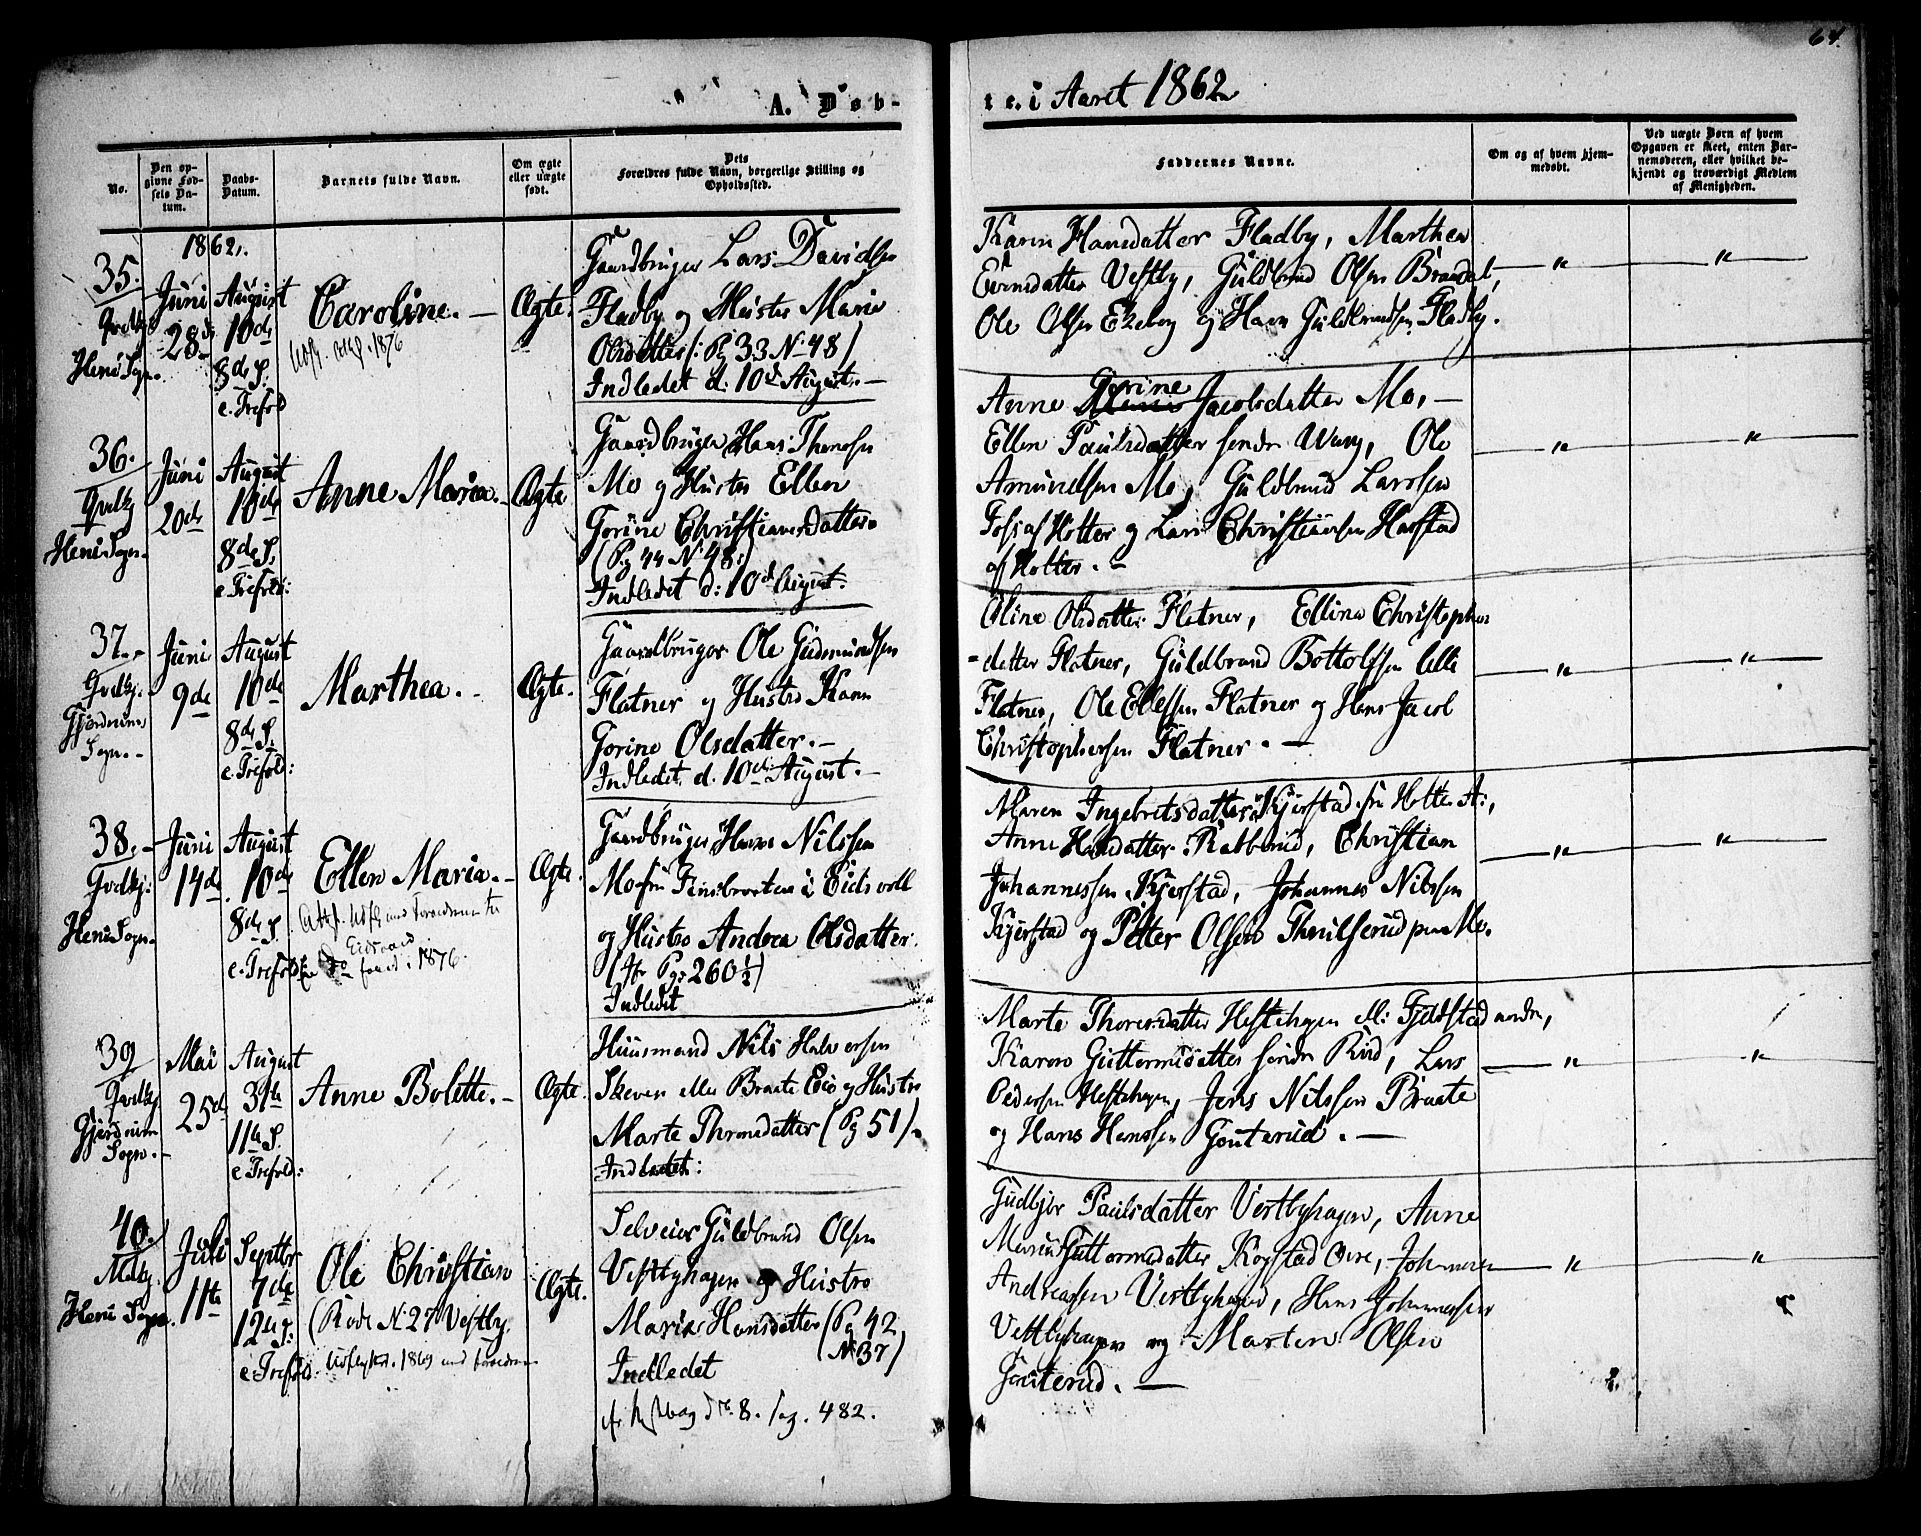 64.
A. Døb-
te. i Aaret 1862
No.
Den op-
givne Fød-
sels Da-
tum.
Daabs-
Datum.
Barnets fulde Navn.
Om ægte
eller uægte
født.
Dets
Forældres fulde Navn, borgerlige Stilling og
Opholdssted.
Faddernes Navne.
Om og af hvem hjem-
medøbt.
Ved uægte Børn af hvem
Opgaven er skeet, enten Bar-
nemoderen, eller hvilket be-
kjendt og troværdigt Medlem
af Menigheden.
1862.
35.
Qvelkj.
Heni Sogn.
Juni
28de
August
10de
8de S.
e. Trefold
Caroline. —
1876
Ægte.
Gaardbruger Lars Davidsen
Fladby og Hustro Marie
Olsdatter (: Pg 33 N: 48)
Indledet d: 10de August. —
Karen Hansdatter Fladby, Marthea
Evensdatter Vestby, Guldbrand Olsen Brandal,
Ole Olsen Ekeberg og Hans Guldbrandsen Fladby.
— " —
"
36.
Qvelkj
Heni Sogn.
Juni
20de
August
10de
8de S.
e. Trefold:
Anne Maria.
Ægte
Gaardbruger Hans Thoresen
Mo og Hustro Ellen
Gorine Christiansdatter
(Pg 44 N: 48.)
Indledet d: 10de August.
Anne Gorine Jacobsdatter Mo, —
Ellen Paulsdatter søndre Warg, Ole
Amundsen Mo, Guldbrand Larssen
Foss af Hotter og Lars Christiansen Harstad
af Hotter. —
"
"
37.
Qvelkj.
Gjerdrums
Sogn. -
Juni
9de
August
10de
8de S.
e. Trefold:
Marthea. -
Ægte.
Gaardbruger Ole Gudmundsen
Flatner og Hustro Karen
Gorine Olsdatter. —
Indledet d. 10de August. —
Oline Olsdatter Flatner, Elline Christophers
=datter Flatner, Guldbrand Bottolfsen lille
Flatner, Ole Ellefsen Flatner og Hans Jacob
Christophersen Flatner. —
"
"
38. -
Qvelkj:
Heni Sogn.
Juni
14de
August
10de
8de S.
e. Trefold:
Ellen Maria. -
Eidsvold
1876.
Ægte.
Gaardbruger Hans Nilssen
Mo fra Finsbraaten i Eidsvold
og Hustro Andrea Olsdatter.
(Jfr Pg: 260½)
Indledet
Maren Ingebretsdatter Kjerstad fra Hotter A:,
Anne Hansdatter Rabberud, Christian
Johannessen Kjerstad, Johannes Nilssen
Kjerstad og Petter Olsen Thrulserud paa Mo.
"
"
39
Qvelkj
Gjerdrum
Sogn. -
Mai
25de
August
31te
11te S.
e. Trefold:
Anne Bolette. -
Ægte.
Huusmand Nils Halvorsen
Skeven eller Braate Eie og Hustro
Marte Thoresdatter (Pg 51).
Indledet:
Marte Thoresdatter Hestehagen eller Fjeldstad nordre,
Karen Guttormsdatter søndre Rud, Lars
Pedersen Hestehagen, Jens Nilssen Braate
og Hans Hanssen Gouterud. —
"
"
40.
Mdkj.
Heni Sogn.
Juli
11te
Septbr
7de
12te S:
e. Trefold.
Ole Christian
(Røde N: 27 Vestby.
Udflyttet 1869 med forældrene
Ægte.
Selveier Guldbrand Olsen
Vestbyhagen og Hustro
Marie Hansdatter (Pg 42
N: 37)
Indledet
No. 8. pag. 482.
Gudbjør Paulsdatter Vestbyhagen, Anne
Marie Guttormsdatter Kogstad øvre, Johannes
Andreassen Vestbyhagen, Hans Johannessen
Vestbyhagen og Marten Olsen
Gouterud. —
"
"